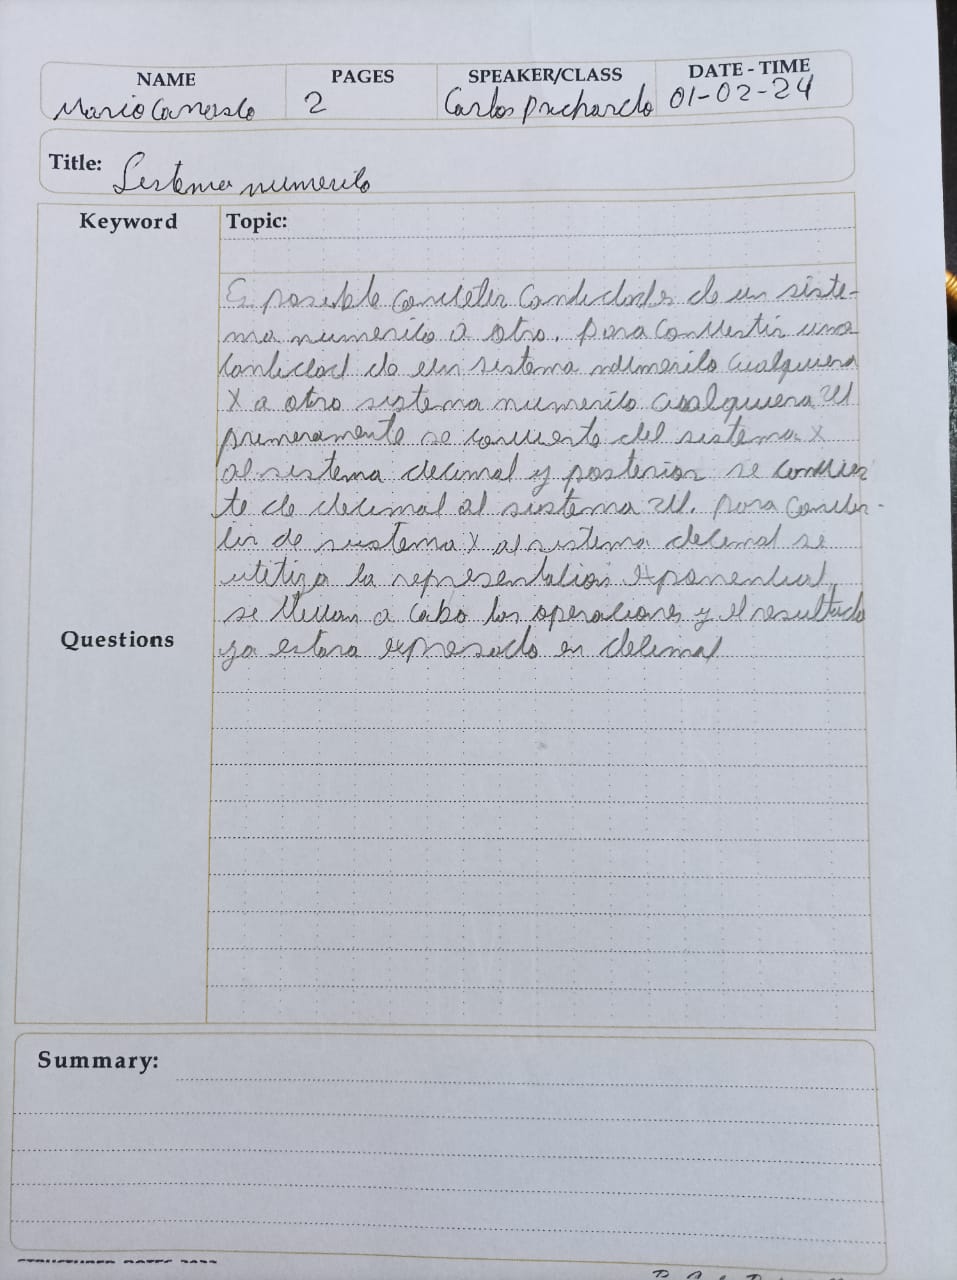 NAME PAGES SPEAKER/CLASS DATE - TIME
Mario 2 Carlos Prichardo 01-02-24
Title: Sistema numerico
Keyword Topic:
Es posible convertir cantidades de un siste-
ma numerico a otro. para convertir una
cantidad de un sistema numerico cualquiera
X a otro sistema numerico cualquiera
primeramente se convierte del sistema X
al sistema decimal y posterior se convier
te de decimal al sistema para conver-
tir de sistema X al sistema decimal se
utiliza la representacion exponencial,
se llevan a cabo las operaciones y el resultado
Questions ya estara expresado en decimal
Summary: